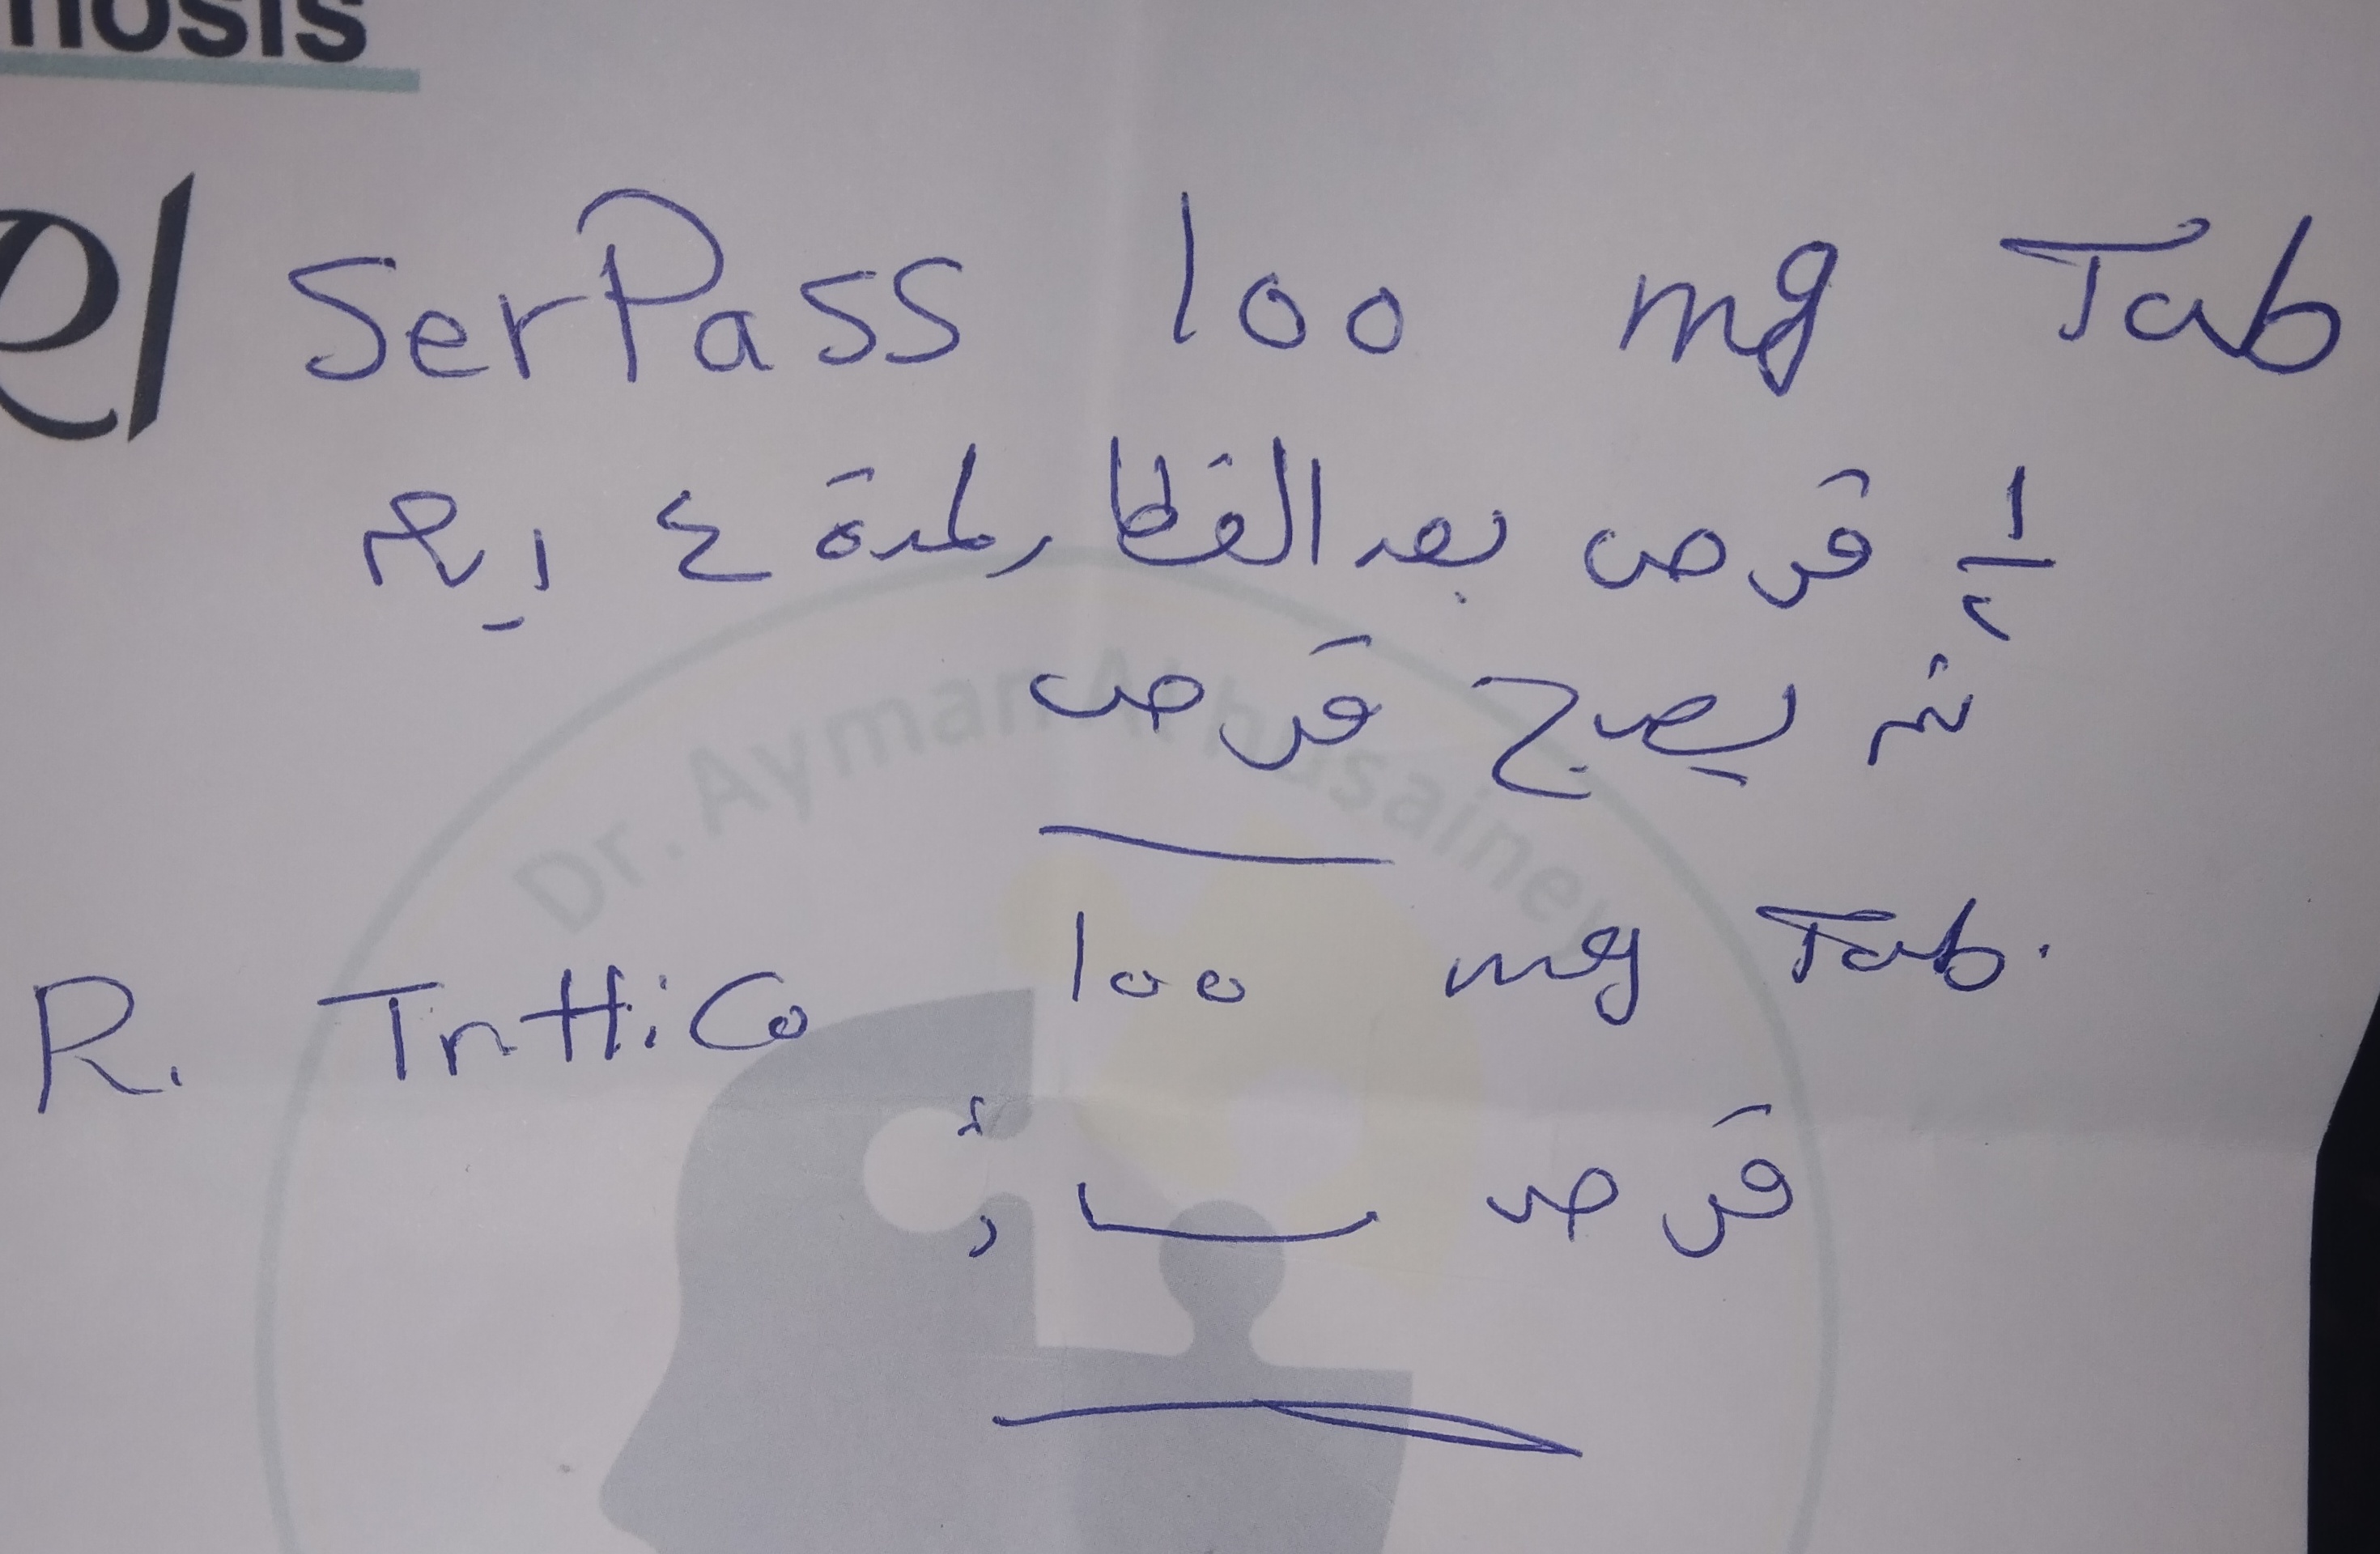 nosis
SerPass 100 mg Tab
١/٢ قرص بعد الفطار لمدة ٤ ايام
ثم يصبح قرص
Dr. Ayman Alhusainey
R. Trittico 100 mg Tab.
قرص مساءً